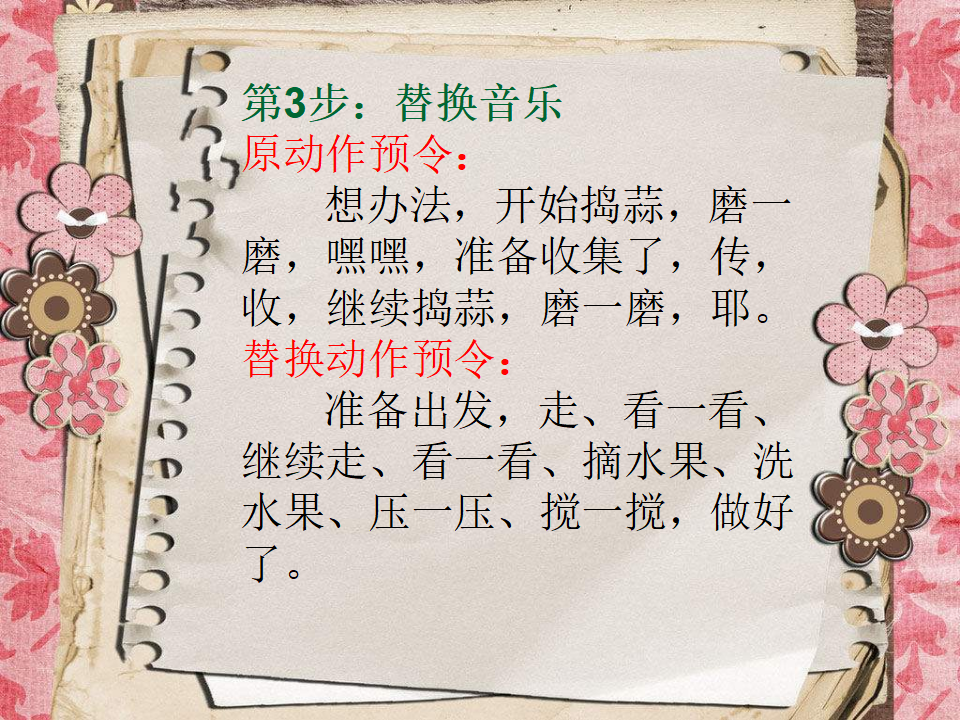 第3步：替换音乐
原动作预令：
想办法，开始捣蒜，磨一
磨，嘿嘿，准备收集了，传，
收，继续捣蒜，磨一磨，耶。
替换动作预令：
准备出发，走、看一看、
继续走、看一看、摘水果、洗
水果、压一压、搅一搅，做好
了。